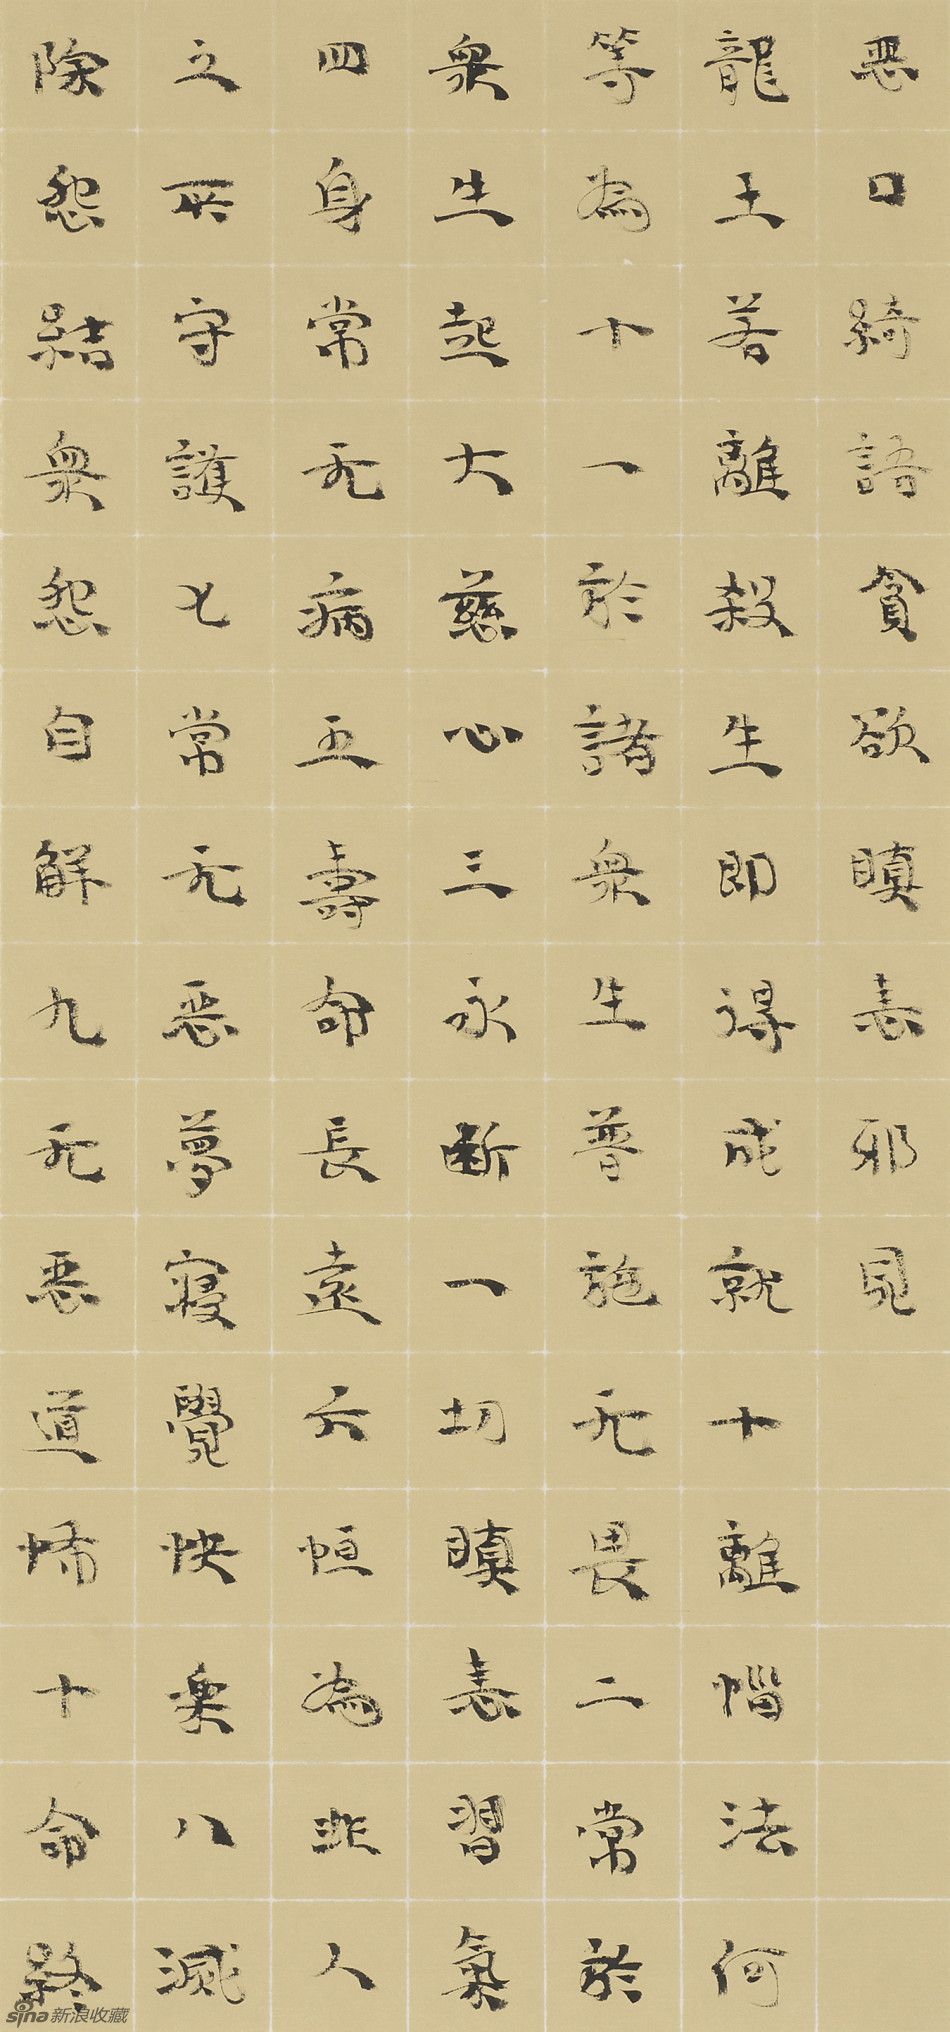 惡口綺語貪欲瞋恚邪見
龍王若離殺生即得成就十離惱法何
等為十一於諸衆生普施无畏二常於
衆生起大慈心三永斷一切瞋恚習氣
四身常无病五壽命長遠六恒為非人
之所守護七常无惡夢寢覺快樂八滅
除怨結衆怨自解九无惡道怖十命終
sina新浪收藏